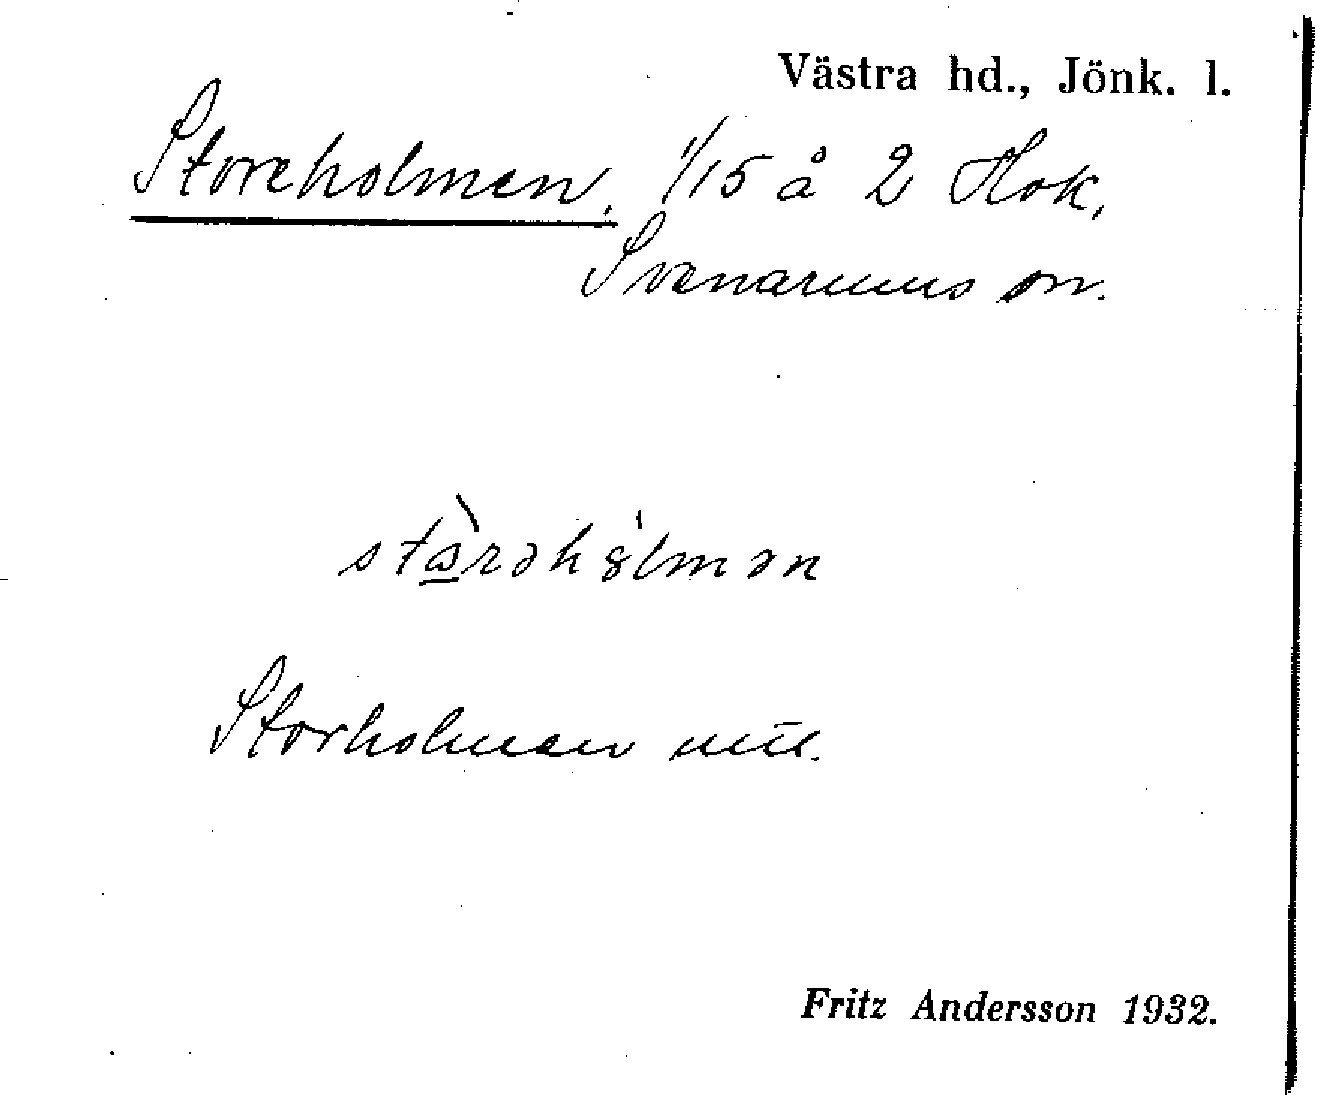 Västra hd., Jönk. l.
Storeholmen, 1/15 å 2 Hok,
Svenarums sn.
stò̲rəhålmən
Storholmen
Fritz Andersson 1932.